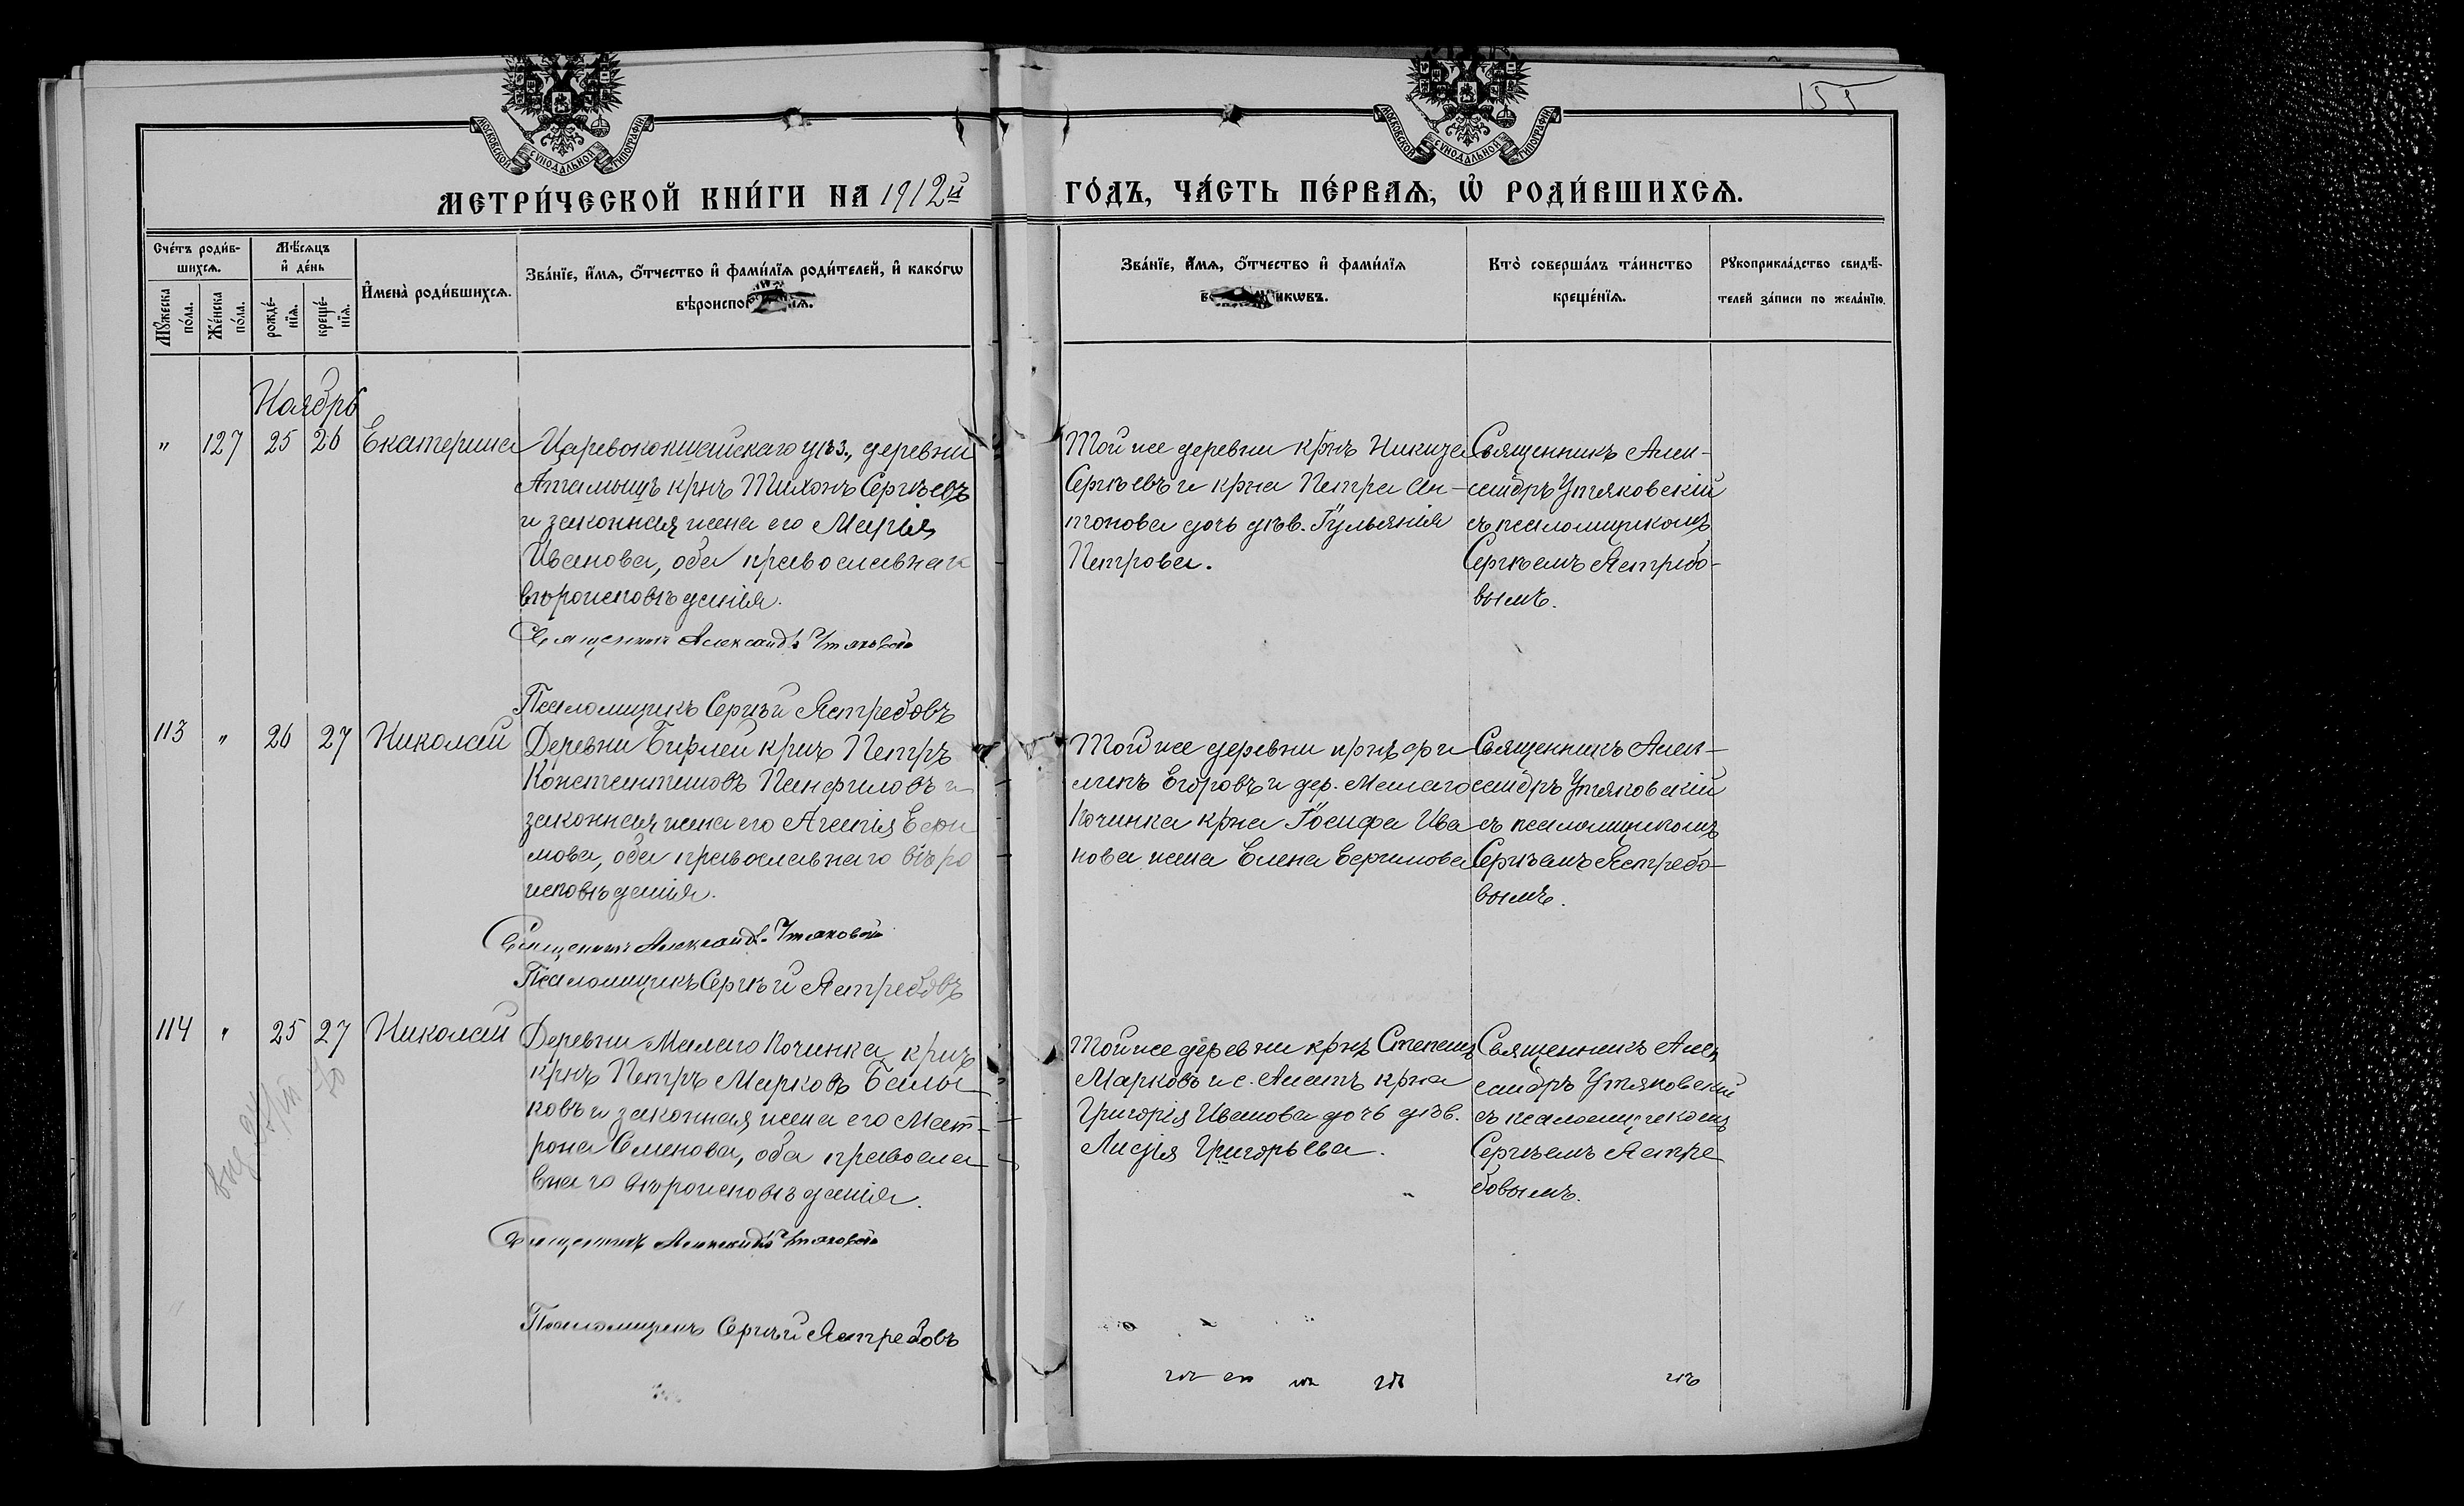 155
МОСКОВСКОЙ СѴНОДАЛЬНОЙ ТИПОГРАФІИ
МОСКОВСКОЙ СѴНОДАЛЬНОЙ ТИПОГРАФІИ
МЕТРИ́ЧЕСКОЙ КНИ́ГИ НА 1912й
ГО́ДЪ, ЧА́СТЬ ПЕ́РВАѦ, Ѡ҆ РОДИ́ВШИХСѦ.
Сче́тъ роди́в-
шихсѧ.
Мꙋ́жеска
по́ла.
Же́нска
по́ла.
Мѣ́сѧцъ
и҆ де́нь
рожде́-
нїѧ.
креще́-
нїѧ.
И҆мена̀ роди́вшихсѧ.
Зва́нїе, и҆́мѧ, ѻ҆́тчество и҆ фами́лїѧ роди́телей, и҆ како́гѡ
Зва́нїе, и҆́мѧ, ѻ҆́тчество и҆ фами́лїѧ
Кто̀ соверша́лъ та́инство
креще́нїѧ.
Рꙋкоприкла́дство свидѣ́-
телей за́писи по жела́нїю.
Ноябрь
" 127 25 26 Екатерина
Царевококшайскаго уѣз., деревни
Атамышъ крнъ Тихонъ Сергѣевъ
и законная жена его Марія
Иванова, оба православнаго
вѣроисповѣданія.
Священникъ Александръ Утяковскій
Псаломщикъ Сергѣй Ястребовъ
Той же деревни крнъ Никита
Сергѣевъ и крна Петра Ан-
тонова дочь дѣв. Іульянія
Петрова.
Священникъ Алек-
сандръ Утяковскій
съ псаломщикомъ
Сергѣемъ Ястребо-
вымъ.
113 " 26 27 Николай
Деревни крнъ Петръ
Константиновъ Панфиловъ и
законная жена его Агапія Ефи
мова, оба православнаго вѣро
исповѣданія.
Священникъ Александръ Утяковскій
Псаломщикъ Сергѣй Ястребовъ
Той же деревни крнъ Фи
липъ Егоровъ и дер. Малаго
Починка крна Іосифа Ива
нова жена Елена Ефимова
Священникъ Алек-
сандръ Утяковскій
съ псаломщикомъ
Сергѣемъ Ястребо-
вымъ.
114 " 25 27 Николай
Деревни Малаго Починка крнъ
крнъ Петръ Марковъ Балы
ковъ и законная жена его Мат-
рона Семенова, оба правосла
внаго вѣроисповѣданія.
Священникъ Александръ Утяковскій
Псаломщикъ Сергѣй Ястребовъ
Той же деревни крнъ Степанъ
Марковъ и с. крна
Григорія Иванова дочь дѣв.
Григорьева.
Священникъ Алек
сандръ Утяковскій
съ псаломщикомъ
Сергѣемъ Ястре
бовымъ.